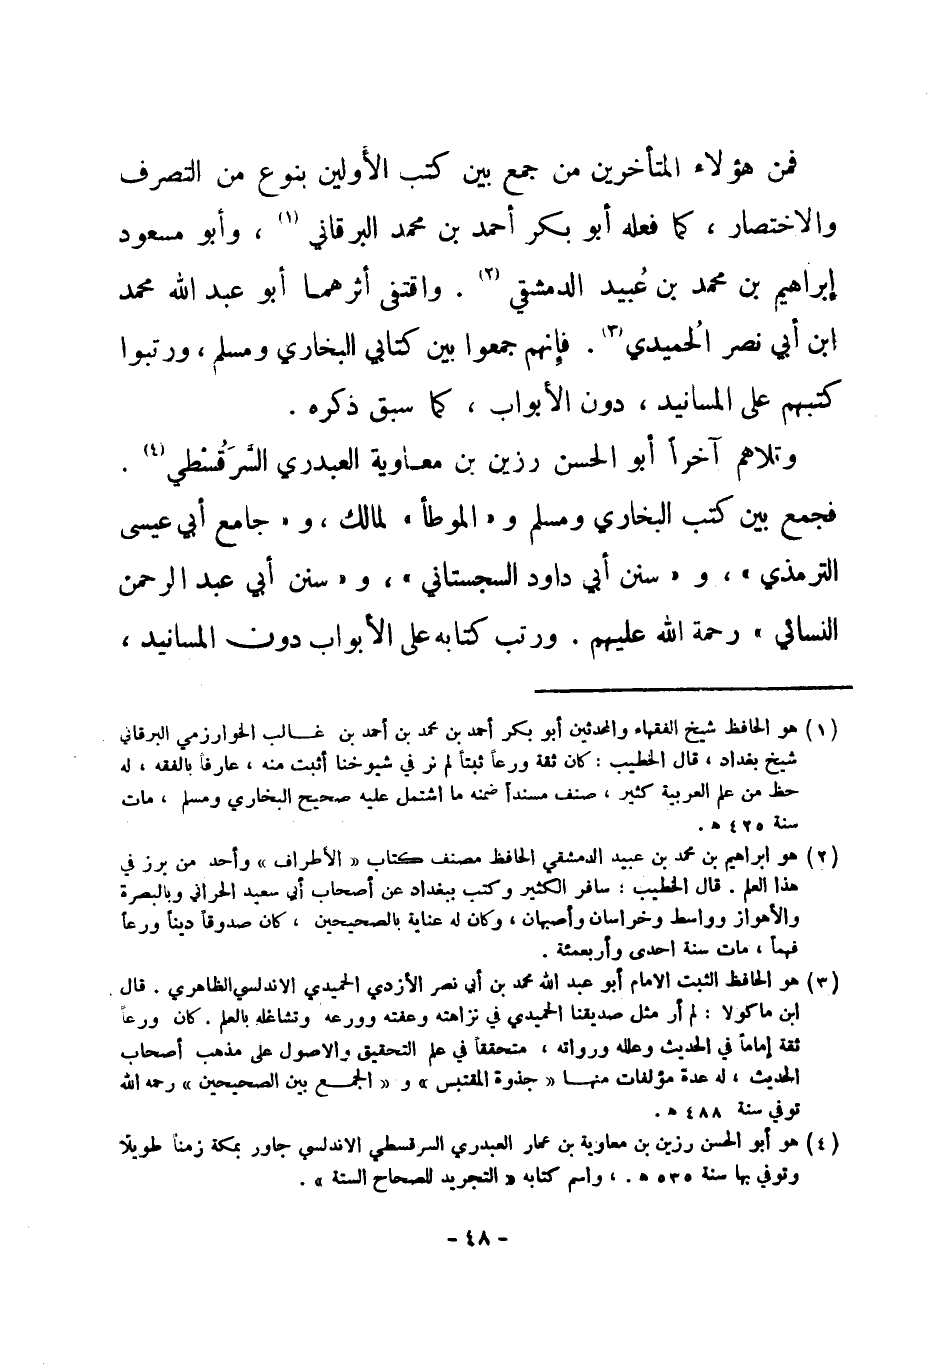 فمن هؤلاء المتأخرين من جمع بين كتب الأولين بنوع من التصرف
والاختصار ، كما فعله أبو بكر أحمد بن محمد البرقاني (١) ، وأبو مسعود
إبراهيم بن محمد بن عُبيد الدمشقي (٢) . واقتفى أثرهما أبو عبد الله محمد
ابن أبي نصر الحُميدي (٣) . فإنهم جمعوا بين كتابي البخاري ومسلم ، ورتبوا
كتبهم على المسانيد ، دون الأبواب ، كما سبق ذكره .
وتلاهم آخراً أبو الحسن رزين بن معاوية العبدري السَّرَقُسْطي (٤) .
فجمع بين كتب البخاري ومسلم و « الموطأ » لمالك ، و « جامع أبي عيسى
الترمذي » ، و « سنن أبي داود السجستاني » ، و « سنن أبي عبد الرحمن
النسائي » رحمة الله عليهم . ورتب كتابه على الأبواب دون المسانيد ،
(١) هو الحافظ شيخ الفقهاء والمحدثين أبو بكر أحمد بن محمد بن أحمد بن غالب الخوارزمي البرقاني
شيخ بغداد ، قال الخطيب : كان ثقة ورعاً ثبتاً لم نر في شيوخنا أثبت منه ، عارفاً بالفقه ، له
حظ من علم العربية كثير ، صنف مسنداً ضمنه ما اشتمل عليه صحيح البخاري ومسلم ، مات
سنة ٤٢٥ ه .
(٢) هو ابراهيم بن محمد بن عبيد الدمشقي الحافظ مصنف كتاب « الأطراف » وأحد من برز في
هذا العلم . قال الخطيب : سافر الكثير وكتب ببغداد عن أصحاب أبي سعيد الحراني وبالبصرة
والأهواز وواسط وخراسان وأصبهان ، وكان له عناية بالصحيحين ، كان صدوقاً ديناً ورعاً
فهماً ، مات سنة احدى وأربعمئة .
(٣) هو الحافظ الثبت الامام أبو عبد الله محمد بن أبي نصر الأزدي الحميدي الاندلسي الظاهري . قال
ابن ماكولا : لم أر مثل صديقنا الحميدي في نزاهته وعفته وورعه وتشاغله بالعلم . كان ورعاً
ثقة إماماً في الحديث وعلله ورواته ، متحققاً في علم التحقيق والاصول على مذهب أصحاب
الحديث ، له عدة مؤلفات منها « جذوة المقتبس » و « الجمع بين الصحيحين » رحمه الله
توفي سنة ٤٨٨ ه .
(٤) هو أبو الحسن رزين بن معاوية بن عمار العبدري السرقسطي الاندلسي جاور بمكة زمناً طويلًا
وتوفي بها سنة ٥٣٥ ه . ، واسم كتابه « التجريد للصحاح الستة » .
- ٤٨ -